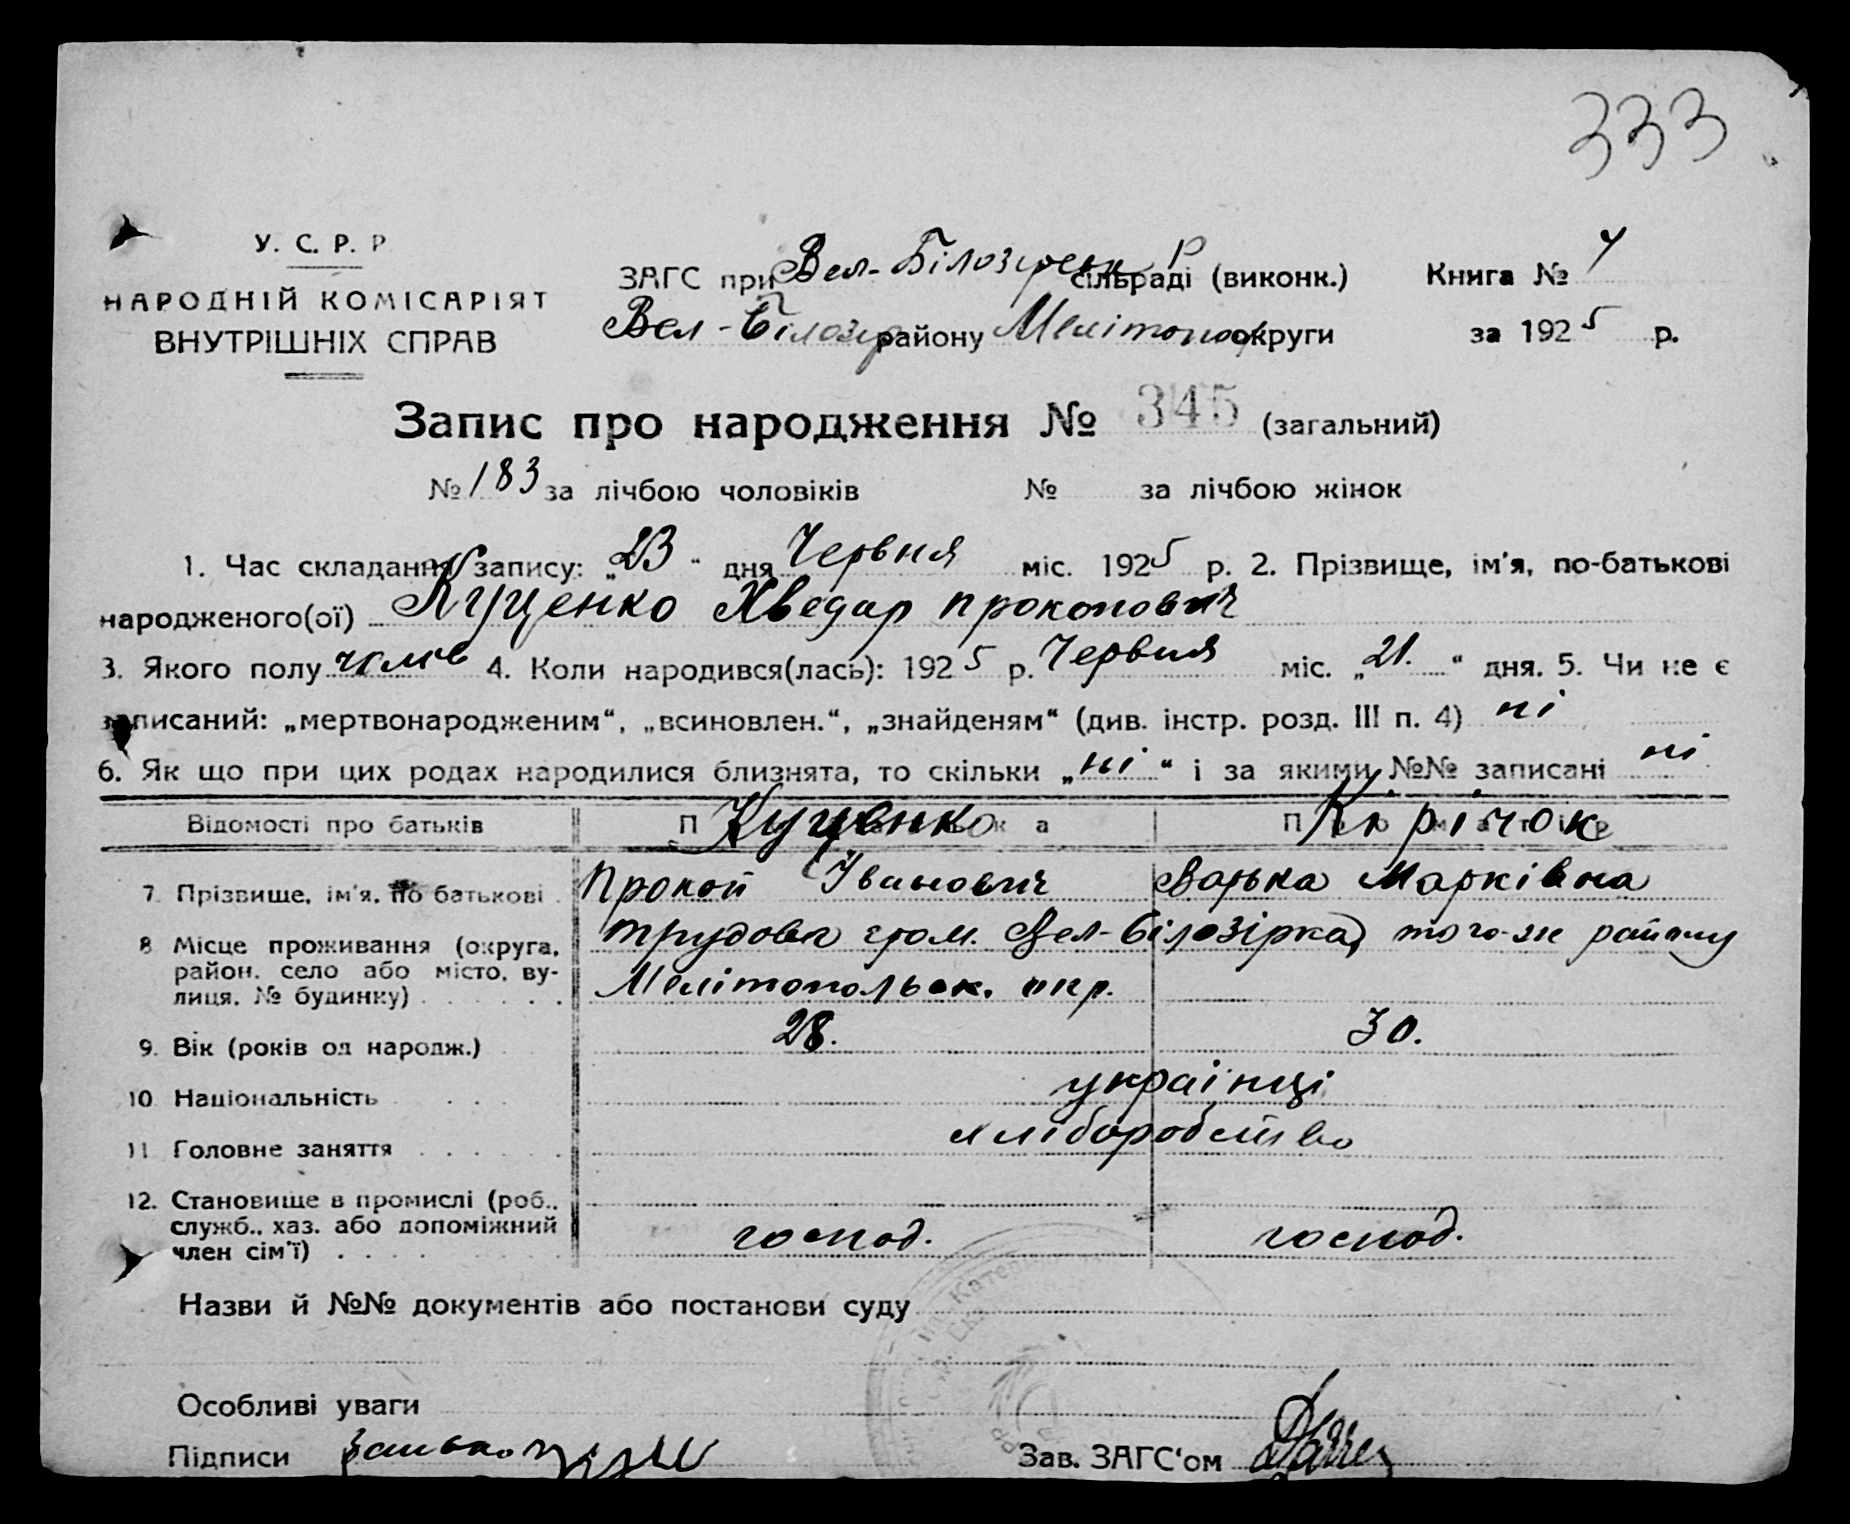 333
У. С. Р. Р.
НАРОДНІЙ КОМІСАРІЯТ
ВНУТРІШНІХ СПРАВ
ЗАГС при Вел-Білозерськ Р сільраді (виконк.) Книга №
Вел-Білозір району Мелітопол округи за 1925 р.
Запис про народження № 345 (загальний)
№ 183 за лічбою чоловіків № за лічбою жінок
1. Час складання запису: „23“ дня Червня міс. 1925 р. 2. Прізвище, ім'я, по-батькові
народженого(ої) Куценко Хведар Прокопович
3. Якого полу чолов 4. Коли народився(лась): 1925 р. Червня міс. „21.“ дня. 5. Чи не є
записаний: „мертвонародженим“, „всиновлен.“, „знайденям“ (див. інстр. розд. III п. 4) ні
6. Як що при цих родах народилися близнята, то скільки „ні“ і за якими №№ записані ні
Відомості про батьків Куценко Кірічок
7. Прізвище, ім'я, по батькові Прокоп Іванович Варька Марківна
8. Місце проживання (округа, трудова гром. Вел-Білозірка, того-ж району
район, село або місто, ву-
лиця, № будинку) Мелітопольськ. окр.
9. Вік (років од народж.) 28. 30.
10. Національність українці
11. Головне заняття хліборобство
12. Становище в промислі (роб.,
служб., хаз. або допоміжний
член сім'ї) господ. господ.
Назви й №№ документів або постанови суду
Особливі уваги
Підписи батько Зав. ЗАГС'ом